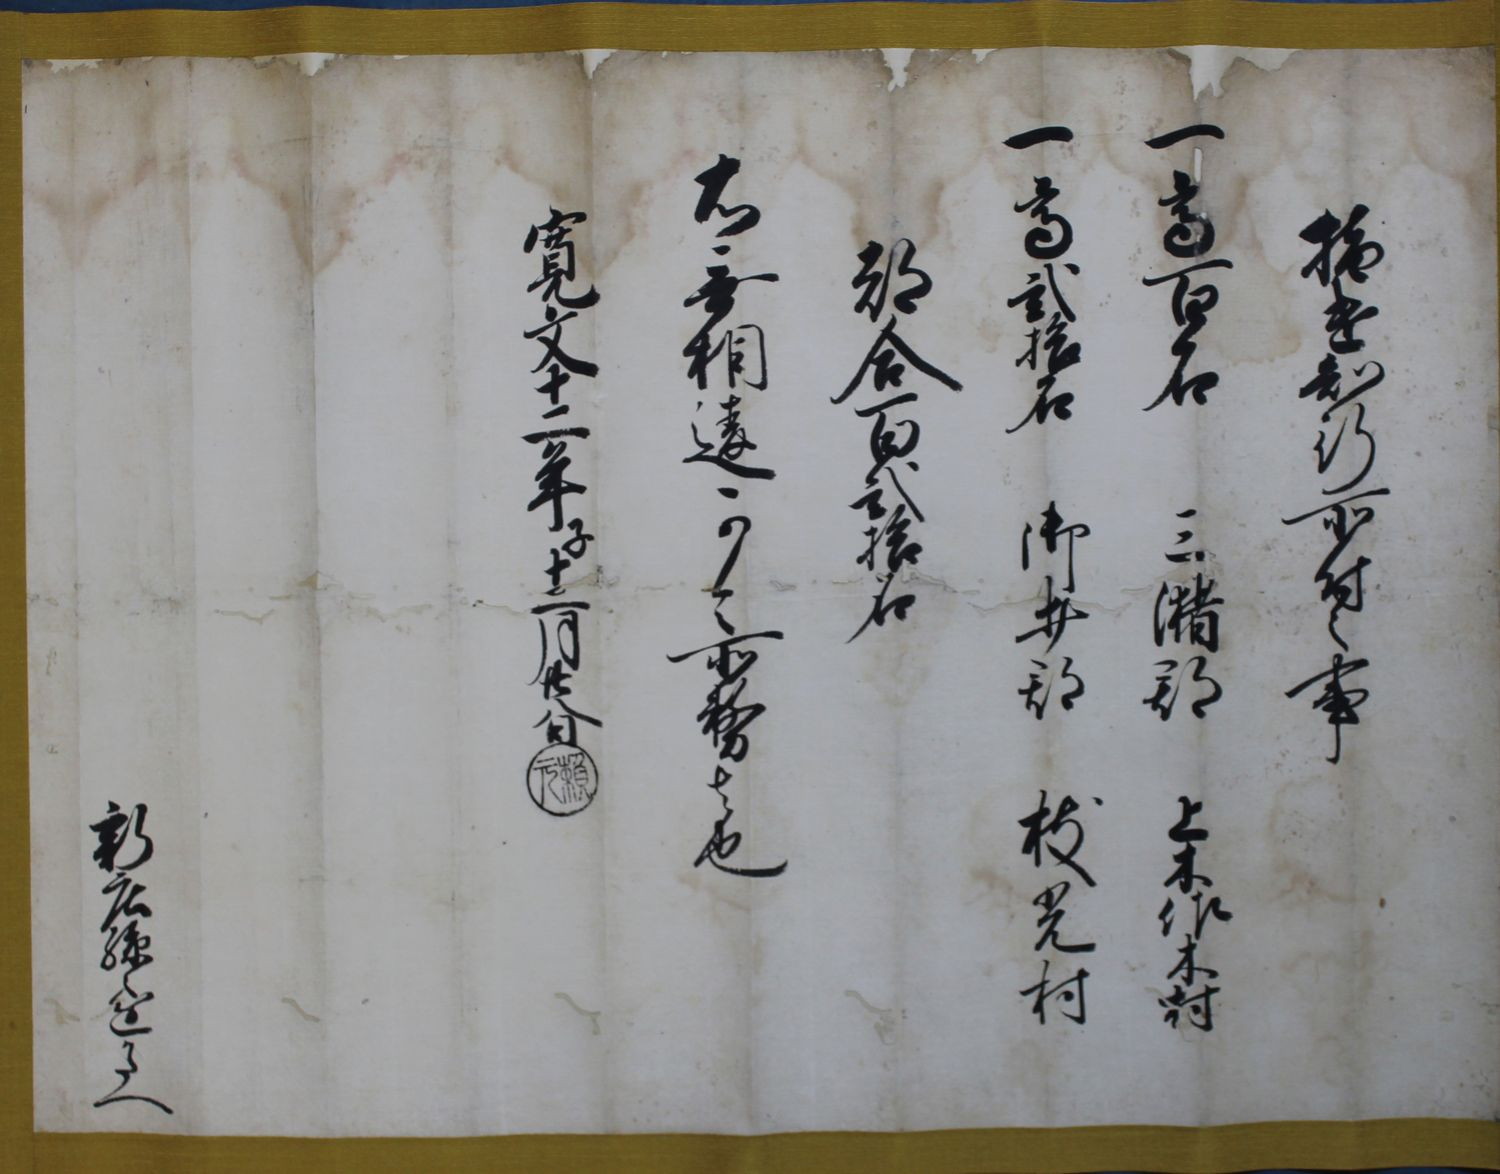 捨遣知行所付之事
一高百石 三潴郡 上木佐木村
一高弐拾石 御井郡 枝光村
都合百弐拾石
右無相違可令所務者也
寛文十二年子十二月廿八日
頼元
新庄孫之進とのへ